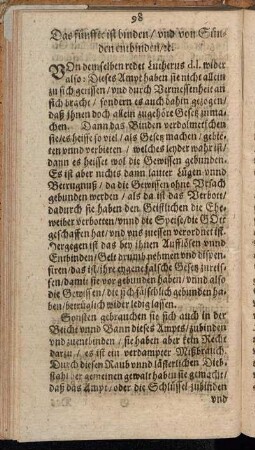 98
Das fünffte ist binden / vnd von Sün-
den entbinden / ꝛc.
VOn demselben redet Lutherus d. l. wider
also: Dieses Ampt haben sie nicht allein
zu sich gerissen / vnd durch Vermessenheit an
sich bracht / sondern es auch dahin gezogen /
daß jhnen doch allein zugehöre Gesetz zuma-
chen. Dann das Binden verdolmetschen
sie / es heisse so viel / als Gesetz machen / gebie-
ten vnnd verbieten / welches leyder wahr ist /
dann es heisset wol die Gewissen gebunden.
Es ist aber nichts dann lauter Lügen vnnd
Betrugnuß / da die Gewissen ohne Vrsach
gebunden werden / als da ist das Verbott /
dadurch sie haben den Geistlichen die Ehe-
weiber verbotten / vnnd die Speise / die GOtt
geschaffen hat / vnd vns zuessen verordnet ist.
Hergegen ist das bey jhnen Aufflösen vnnd
Entbinden / Gelt drumb nehmen vnd dispen-
siren / das ist / jhre eygene falsche Gesetz zureis-
sen / damit sie vor gebunden haben / vnnd also
die Gewissen / die sich fälschlich gebunden ha-
ben / betrüglich wider ledig lassen.
Sonsten gebrauchen sie sich auch in der
Beicht vnnd Bann dieses Ampts / zubinden
vnd zuentbinden / sie haben aber kein Recht
darzu / es ist ein verdampter Mißbrauch.
Durch diesen Raub vnnd lästerlichen Dieb-
stahl der gemeinen gewalt haben sie gemacht /
daß das Ampt / oder die Schlüssel zubinden
vnd